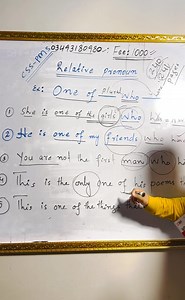 CSS-PMS 03443180980 - Fee: 1000
Relative pronoun
Ex: One of plural who
① She is one of the girls who
② He is one of my friends who
③ You are not the first man who
④ This is the only one of his poems
⑤ This is one of the things